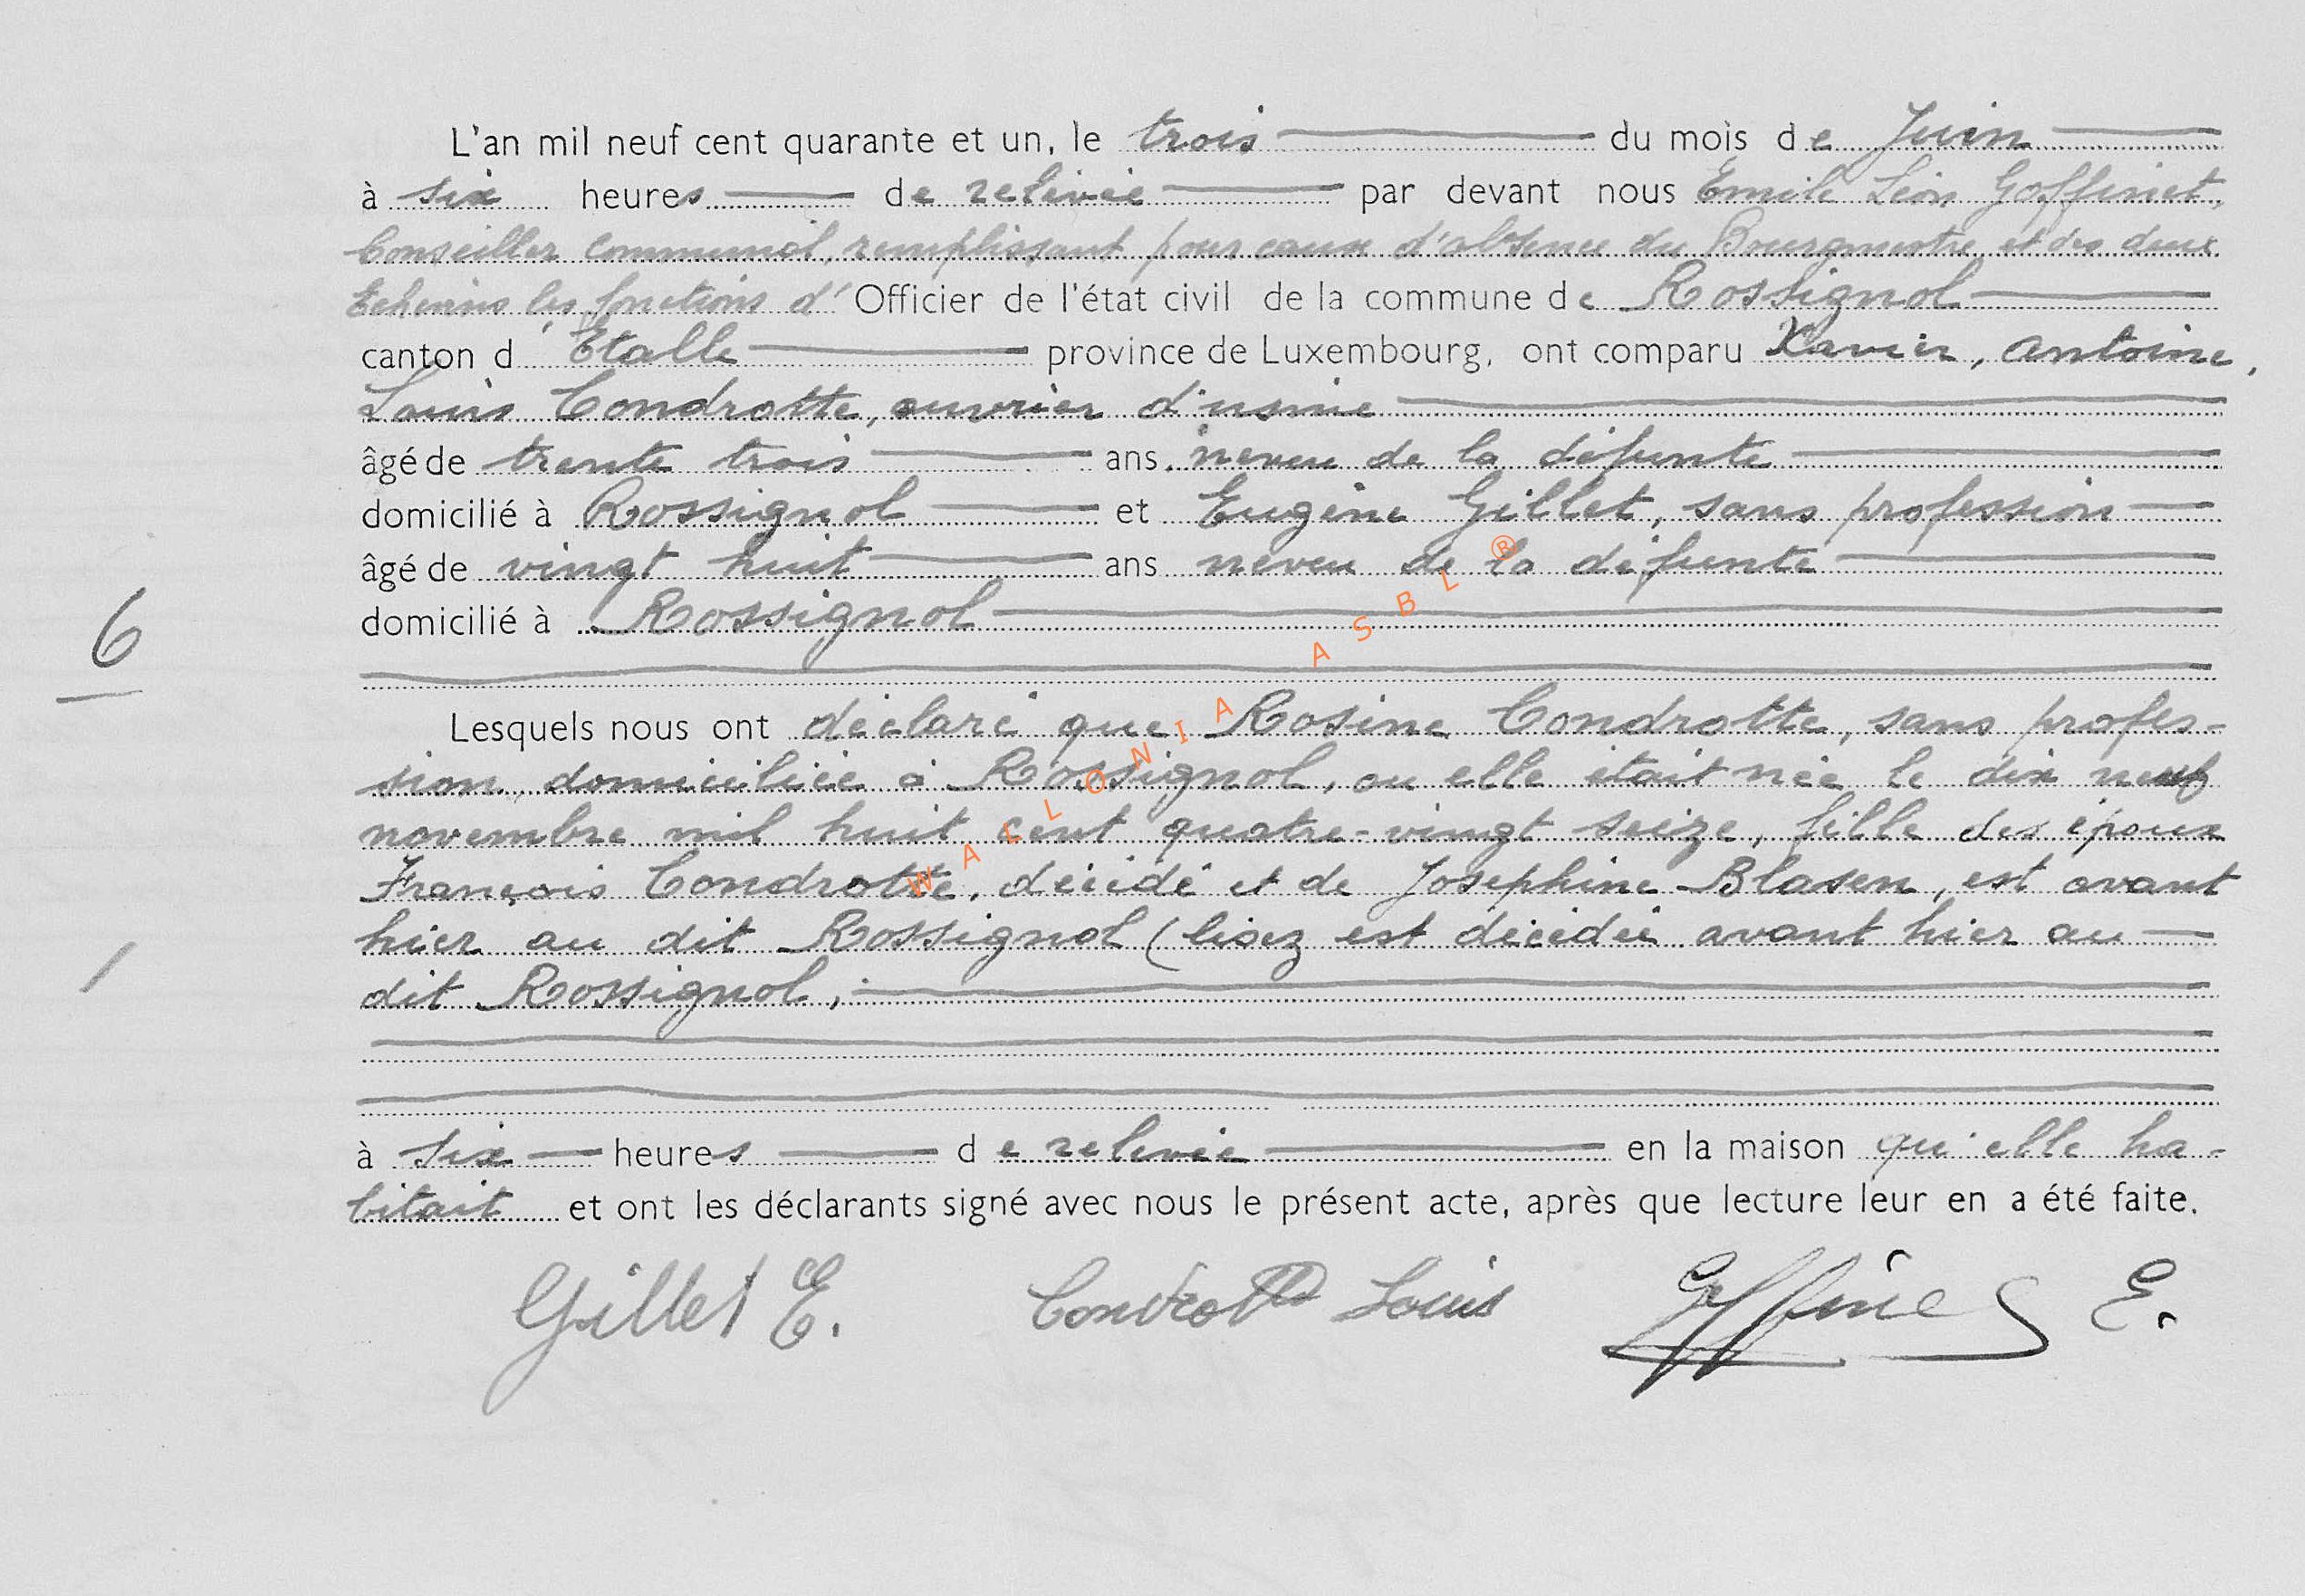 L'an mil neuf cent quarante et un, le trois du mois de Juin
à six heures de relevée par devant nous Emile Léon Goffinet,
Conseiller communal, remplissant pour cause d'absence du Bourgmestre et des deux
Echevins les fonctions d' Officier de l'état civil de la commune de Rossignol
canton d'Etalle province de Luxembourg, ont comparu Xavier, Antoine,
Louis Condrotte, ouvrier d'usine
âgé de trente trois ans, neveu de la défunte
domicilié à Rossignol et Eugène Gillet, sans profession
âgé de vingt huit ans neveu de la défunte
domicilié à Rossignol
6
Lesquels nous ont déclaré que Rosine Condrotte, sans profes-
sion, domiciliée à Rossignol, ou elle était née le dix neuf
novembre mil huit cent quatre-vingt seize, fille des époux
François Condrotte, décédé et de Joséphine Blasen, est avant
hier au dit Rossignol (lisez est décédée avant hier au
dit Rossignol,
à six heures de relevée en la maison qu'elle ha-
bitait et ont les déclarants signé avec nous le présent acte, après que lecture leur en a été faite.
Gillet E. Condrotte Louis Goffinet E.
WALLONIA ASBL ®